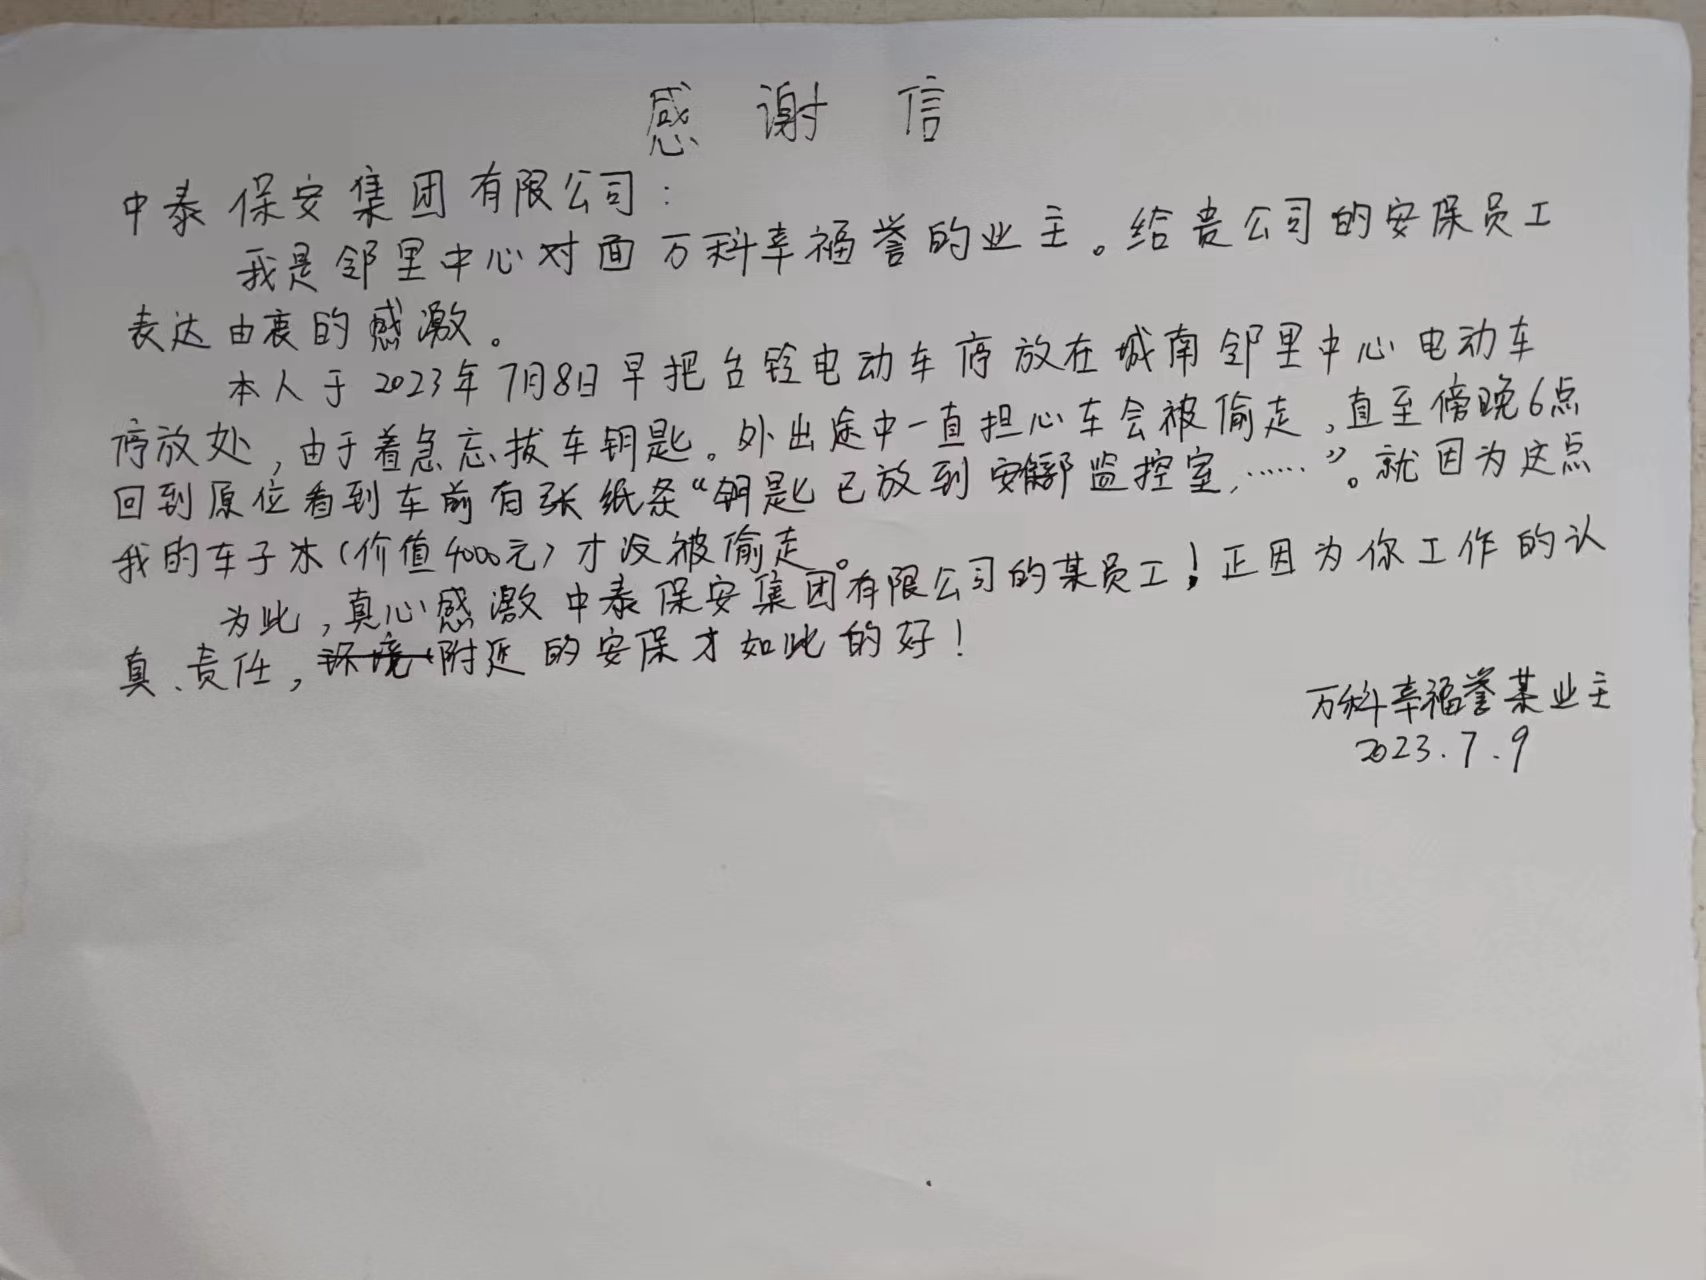 感谢信
中泰保安集团有限公司：
我是邻里中心对面万科幸福誉的业主。给贵公司的安保员工
表达由衷的感激。
本人于2023年7月8日早把台铃电动车停放在城南邻里中心电动车
停放处，由于着急忘拔车钥匙。外出途中一直担心车会被偷走，直至傍晚6点
回到原位看到车前有张纸条“钥匙已放到安保部监控室，……”。就因为这点
我的车子(价值4000元)才没被偷走。
为此，真心感激中泰保安集团有限公司的某员工！正因为你工作的认
真、责任，附近的安保才如此的好！
万科幸福誉某业主
2023.7.9